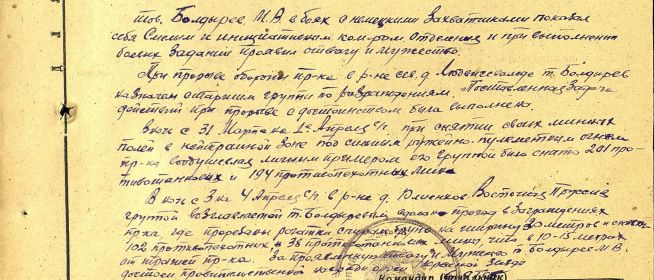 тов. Болдырев М.В. в боях с немецкими захватчиками показал
себя смелым и инициативным ком-ром отделения и при выполнении
боевых заданий проявил отвагу и мужество.
При прорыве обороны пр-ка в р-не сев. д. т. Болдырев
назначен старшим группы по разграждениям. Поставленная задача
действий при прорыве с достоинством была выполнена.
В ночь с 31 Марта на 1 Апреля с/г. при снятии своих минных
полей в нейтральной зоне под сильным ружейно-пулеметным огнем
пр-ка воодушевляя личным примером его группой было снято 201 про-
тивотанковых и 194 противопехотных мин
В ночь с 3 на 4 Апреля с/г. в р-не д. Восточная Пруссия
группой возглавляемой т. Болдыревым сделано проход в заграждениях
пр-ка, где прорезаны рогатки на ширину 30 метров и снято
102 противопехотных и 38 противотанковых мин, в 10-15 метрах
от траншей пр-ка. За проявленную отвагу и мужество т. Болдырев М.В.
достоин правительственной награды орден Красной Звезды
Командир